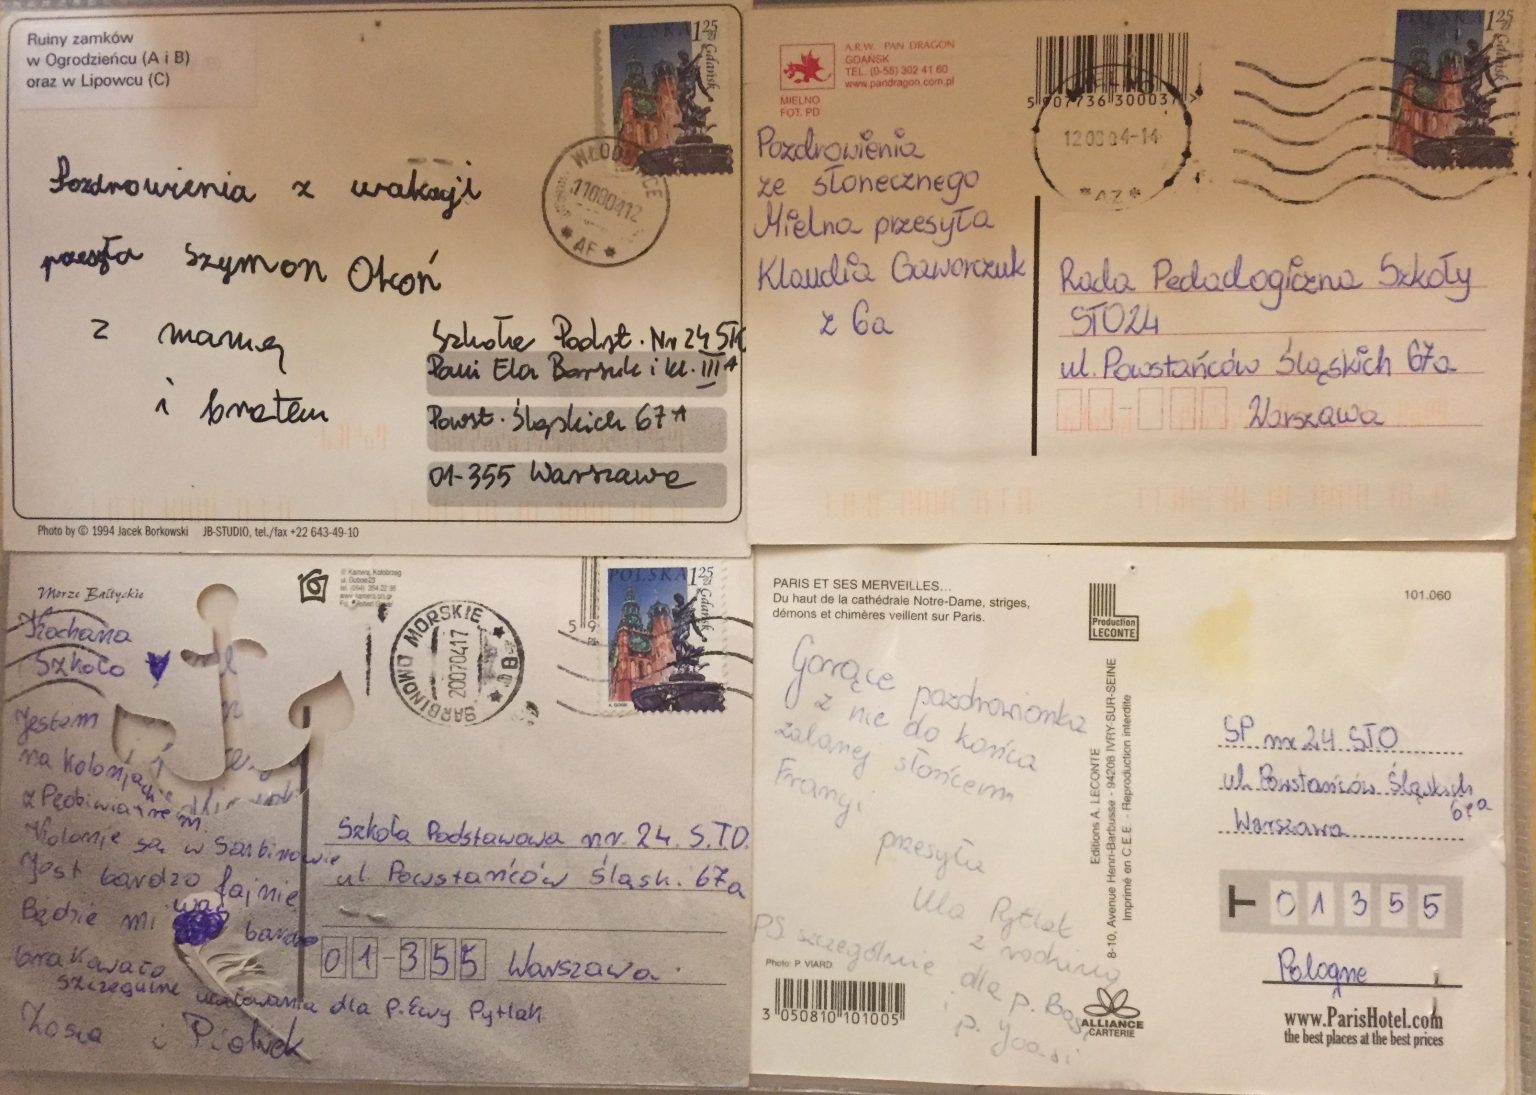 Ruiny zamków
w Ogrodzieńcu (A i B)
oraz w Lipowcu (C)
POLSKA 1 25 zł
Gdańsk
110804 12
* AF *
Pozdrowienia z wakacji
przesyła Szymon Okoń
z mamą
i bratem
Szkoła Podst. Nr 24 ST
Pani Ela Borsuk i kl. III A
Powst. Śląskich 67A
01-355 Warszawa
Photo by © 1994 Jacek Borkowski JB-STUDIO, tel./fax +22 643-49-10
A.R.W. PAN DRAGON
GDAŃSK
TEL. (0-58) 302 41 60
www.pandragon.com.pl
MIELNO
FOT. PD
5 907736 300037 >
POLSKA 1 25 zł
Gdańsk
MIELNO
120804-14
* AZ *
Pozdrowienia
ze słonecznego
Mielna przesyła
Klaudia Gaworczuk
z 6a
Rada Pedadogiczna Szkoły
STO24
ul. Powstańców Śląskich 67a
Warszawa
Morze Bałtyckie
© Kamera, Kołobrzeg
POLSKA 1 25 zł
Gdańsk
SARBINOWO MORSKIE
200704 17
5 9
Kochana
Szkoło
Jestem
na koloniach
Kolonie są w Sarbinowie
Jest bardzo fajnie
Będzie mi was bardzo
brakowało
dla p. Ewy Pytlak
Zosia i Piotrek
Szkoła Podstawowa nr. 24 S.T.O.
ul. Powstańców Śląsk. 67a
01-355 Warszawa
PARIS ET SES MERVEILLES...
Du haut de la cathédrale Notre-Dame, striges,
démons et chimères veillent sur Paris.
Production
LECONTE
101.060
Gorące pozdrowionka
z nie do końca
zalanej słońcem
Francji
przesyła
Ula Pytlak
z rodziną
PS szczególnie dla p. Basi
i p. Joasi
Editions A. LECONTE
8-10, Avenue Henri-Barbusse - 94208 IVRY-SUR-SEINE
Imprimé en C.E.E. - Reproduction interdite
SP nr 24 STO
ul. Powstańców Śląskich
67a
Warszawa
T 01355
Pologne
Photo: P. VIARD
3 050810 101005
ALLIANCE
CARTERIE
www.ParisHotel.com
the best places at the best prices